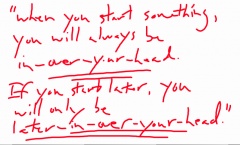 "when you start something,
you will always be
in-over-your-head.
If you start later, you
will only be
later-in-over-your-head."